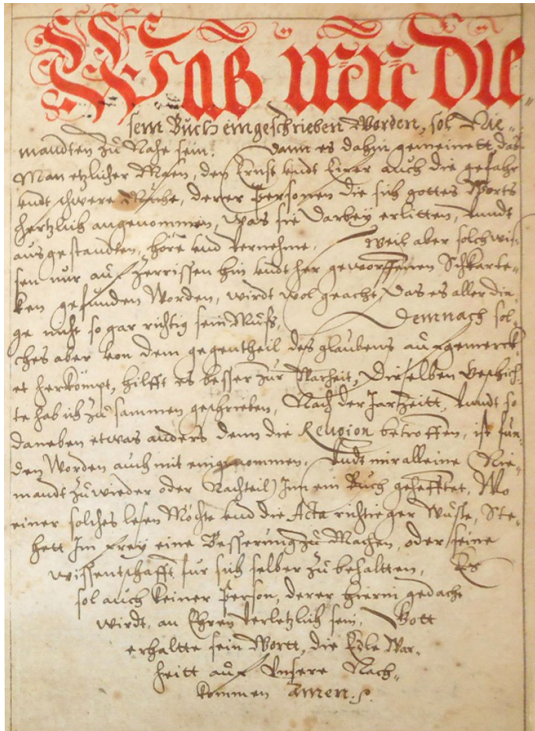 Waß inn Die
sem Buch eingeschrieben Worden, sol Nie-
mandten Zu Nahe sein. Dann es dahin gemeinett, das
Man etzlicher Massen, den Ernst vndt Eifer auch die gefahr
vndt schwere Mühe, derer Personen die sich gottes Worts
hertzlich angenommen, Was sie darbey erlitten, vnndt
ausgestandten, höre vnd vernehme. Weil aber solch wis-
sen nur auß Zerrissen hin vndt her geworffenen Schkarte-
ken gefunden Worden, wirdt wol geacht, das es aller din
ge nicht so gar richtig sein Muß, Demnach sol-
ches aber von dem gegentheil des glaubens auffgemerck-
et herkömpt, hilfft es besser zur Warheit, Dieselben
te hab ich Zu sammen geschrieben, Nach der JarZeitt, Vnndt so
daneben etwas anders denn die Religion betroffen, ist fun-
den Worden auch mit eingenommen. Vndt mir alleine Nie-
mandt Zu wieder oder Nachteil Jnn ein Buch gehefftet, Wo
einer solches lesen Möchte vnd die Acta richtiger Wuste, Ste-
hett Jm frey eine Besserung Zu Machen, oder seine
wissentschafft fur sich selber Zu behaltten, Es
sol auch keiner Person, derer hierin gedacht
wirdt, an Ehren verletzlich sein, Gott
erhaltte sein Wortt, die Edle War-
heitt auff Vnsere Nach-
kommen Amen.